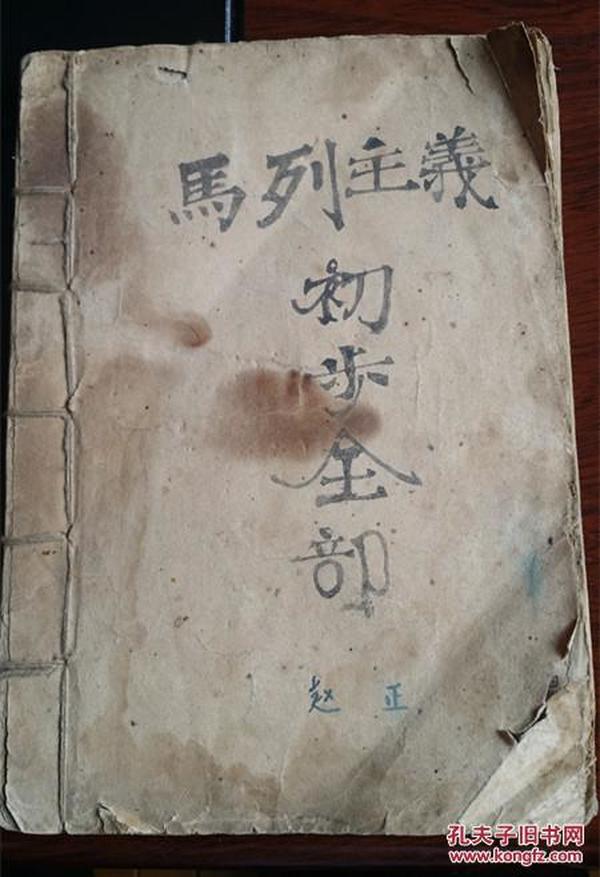 馬列主義
初
步
全
部
赵 正
孔夫子旧书网
www.kongfz.com